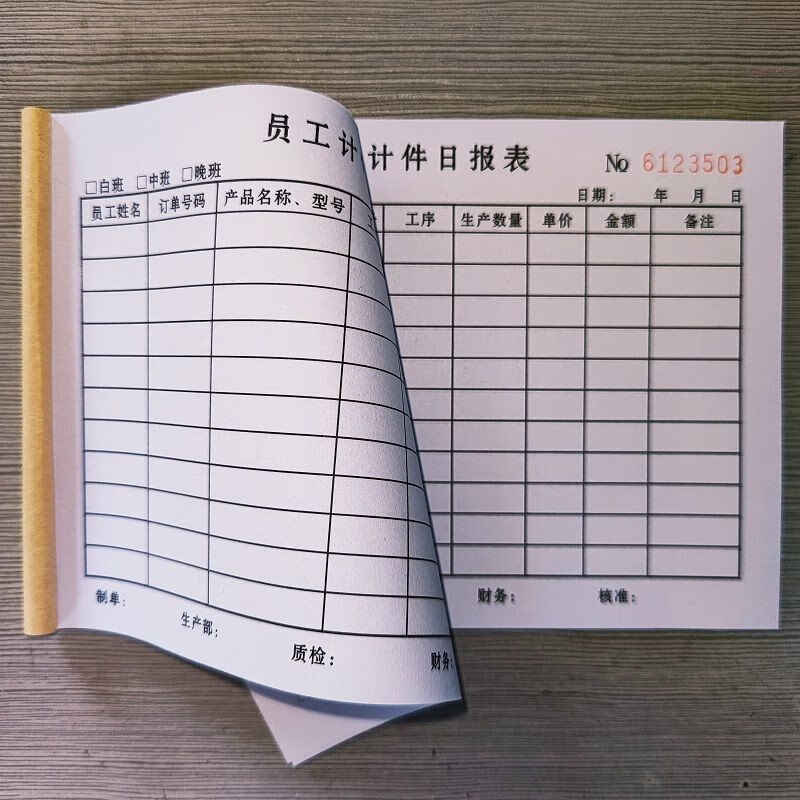 员工计计件日报表 No 6123503
□白班 □中班 □晚班 日期： 年 月 日
员工姓名 订单号码 产品名称、型号 工序 生产数量 单价 金额 备注
制单： 生产部： 质检： 财务： 财务： 核准：